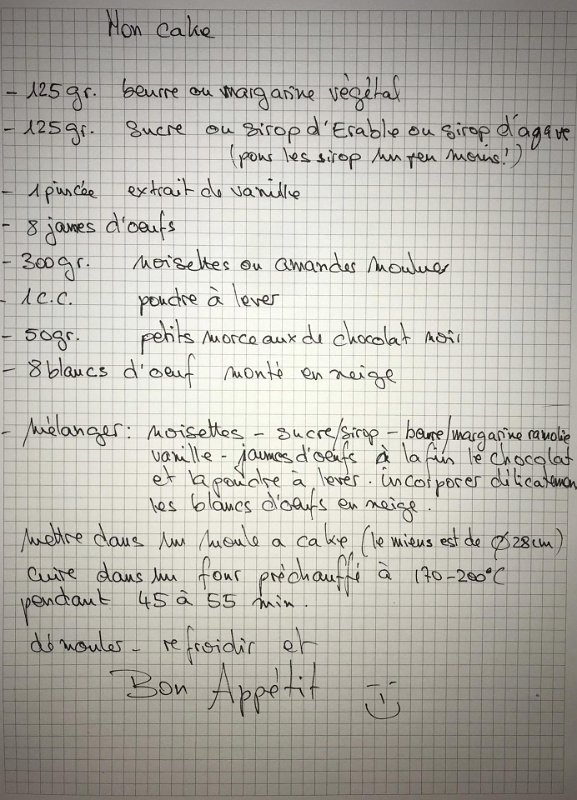 Mon cake
- 125gr. beurre ou margarine végétal
- 125gr. sucre ou sirop d'Erable ou sirop d'agave
(pour les sirop un peu moins!)
- 1 pincée extrait de vanille
- 8 jaunes d'oeufs
- 300gr. noisettes ou amandes moulues
- 1 c.c. poudre à lever
- 50gr. petits morceaux de chocolat noir
- 8 blancs d'oeuf monté en neige
- Mélanger: noisettes - sucre/sirop - beurre/margarine ramolie
vanille - jaunes d'oeufs à la fin le chocolat
et la poudre à lever. incorporer délicatement
les blancs d'oeufs en neige.
Mettre dans un moule a cake (le miens est de Ø 28cm)
Cuire dans un four préchauffé à 170-200°C
pendant 45 à 55 min.
démouler - refroidir et
Bon Appétit